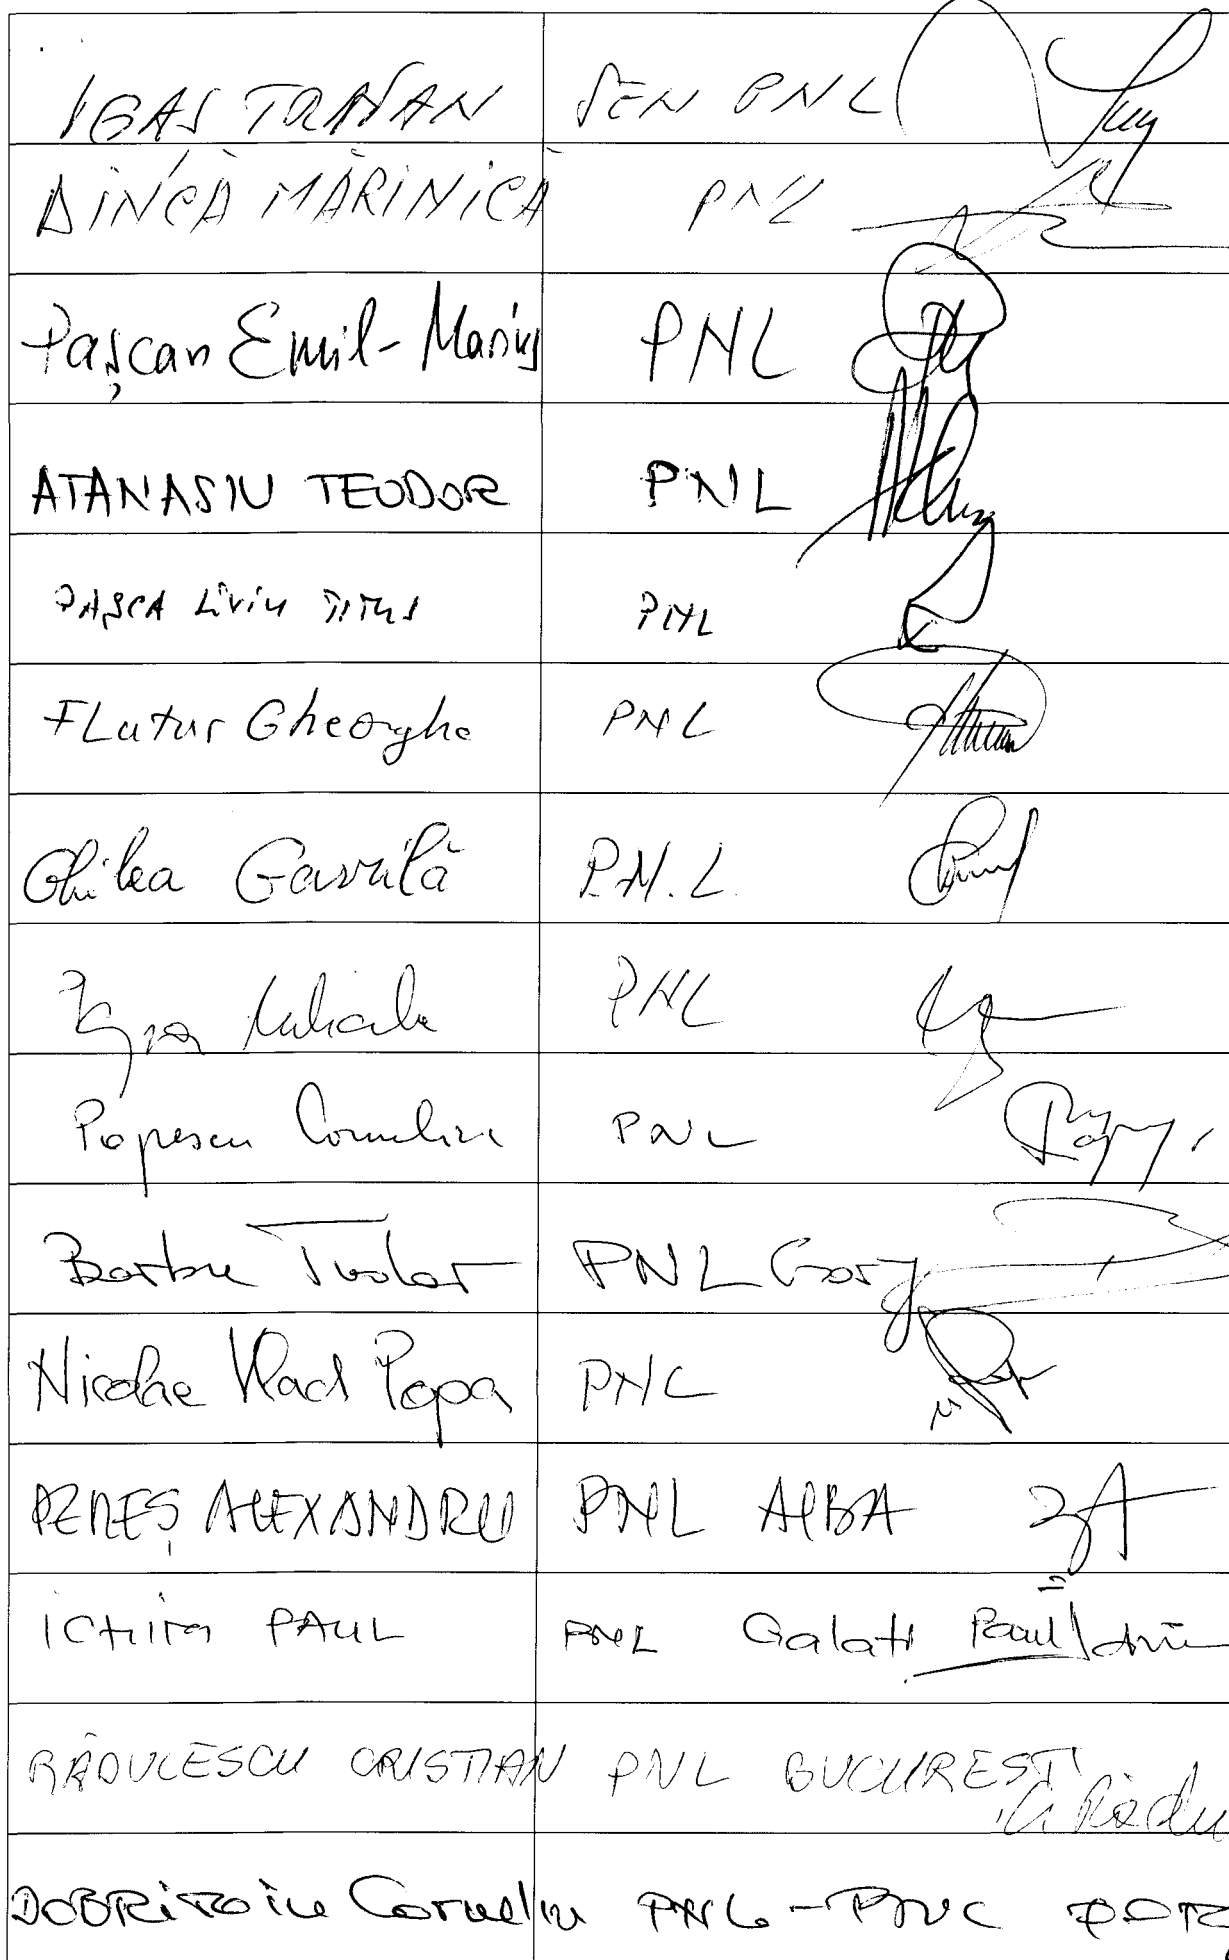 IGAS TRAIAN SEN PNL
DINCĂ MĂRINICĂ PNL
Pașcan Emil-Marius PNL
ATANASIU TEODOR PNL
PAȘCA LIVIU TITUS PNL
FLutur Gheorghe PNL
Ghilea Gavrilă P.N.L.
PNL
Popescu Corneliu PNL
Barbu Tudor PNL Gorj
Nicolae Vlad Popa PNL
PEREȘ ALEXANDRU PNL ALBA
ICHIM PAUL PNL Galati Paul Ichim
RĂDULESCU CRISTIAN PNL BUCUREST
DOBRIȚOIU Corneliu PNL -